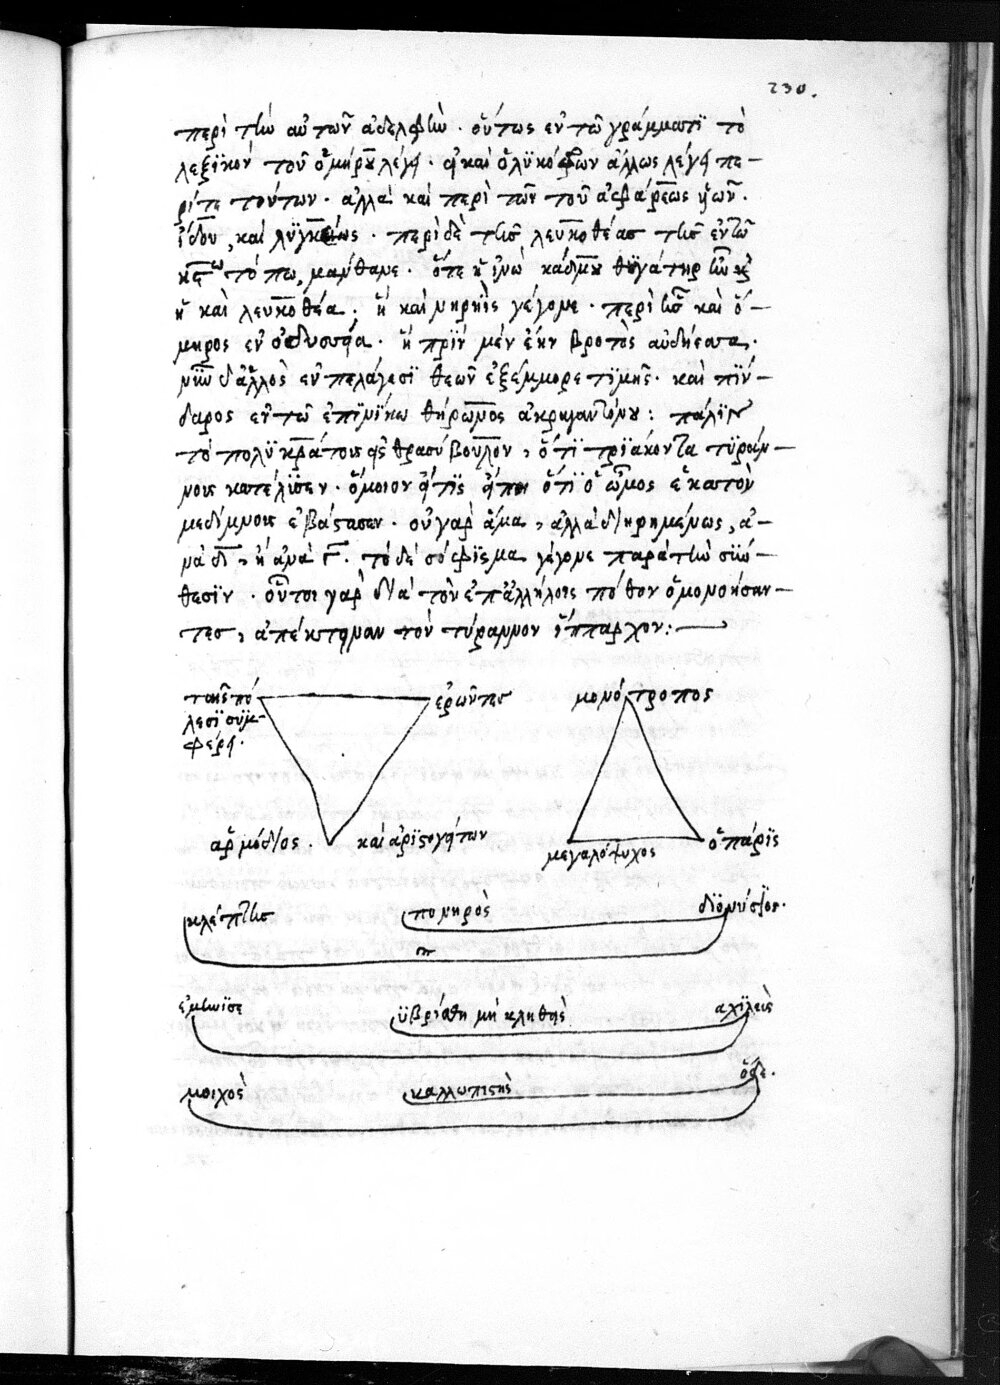 230.
περὶ τὴν αὐτῶν ἀδελφὴν. οὕτως ἐν τῶ γράμματι τὸ
λεξικὸν τοῦ ὁμήρου λέγει. εἰ καὶ ὁ λυκόφρων ἄλλως λέγει πε-
ρί τε τούτων. ἀλλὰ καὶ περὶ τῶν τοῦ ἀφάρεως υἱῶν.
ἴδου, καὶ λυγκέως. περὶ δὲ τῆς λευκοθέας τῆς ἐν τῶ
τόπω, μάνθανε. ὅτε ἡ ἰνὼ κάδμου θυγάτηρ ἦν
ἡ καὶ λευκοθέα. ἡ καὶ νηρηὶς γέγονε. περὶ ἧς καὶ ὅ-
μηρος ἐν ὀδυσσεία. ἡ πρὶν μὲν ἔην βροτὸς αὐδήεσσα.
νῦν δ' ἁλὸς ἐν πελάγεσι θεῶν ἐξέμμορε τιμῆς. καὶ πίν-
δαρος ἐν τῶ ἐπινίκω θήρωνος ἀκραγαντίνου: πάλιν
τὸ πολυκράτους εἰς θρασύβουλον, ὅτι τριάκοντα τυράν-
νους κατέλυσεν. ὅμοιον εἴ τις εἴποι ὅτι ὁ ὦμος ἕκαστον
μεδίμνους ἐβάστασεν. οὐ γὰρ ἅμα, ἀλλὰ διηρημένως, ἀ-
νὰ δ, ἢ ἀνὰ γ. τὸ δὲ σόφισμα γέγονε παρὰ τὴν σύν-
θεσιν. οὗτοι γὰρ διὰ τὸν ἐπ' ἀλλήλοις πόθον ὁμονοήσαν-
τες, ἀπέκτειναν τὸν τύραννον ἵππαρχον:
ταῖς πό
λεσι συμ-
φέρει.
ἐρῶντες
μονότροπος
ἁρμόδιος.
καὶ ἀριστογείτων
μεγαλόψυχος
ὁ πάρις
κλέπτης
πονηρὸς
διονύσιος.
ἐμήνισε
ὑβρίσθη μὴ κληθεὶς
ἀχιλεὺς
μοιχὸς
καλλωπιστὴς
ὅδε.